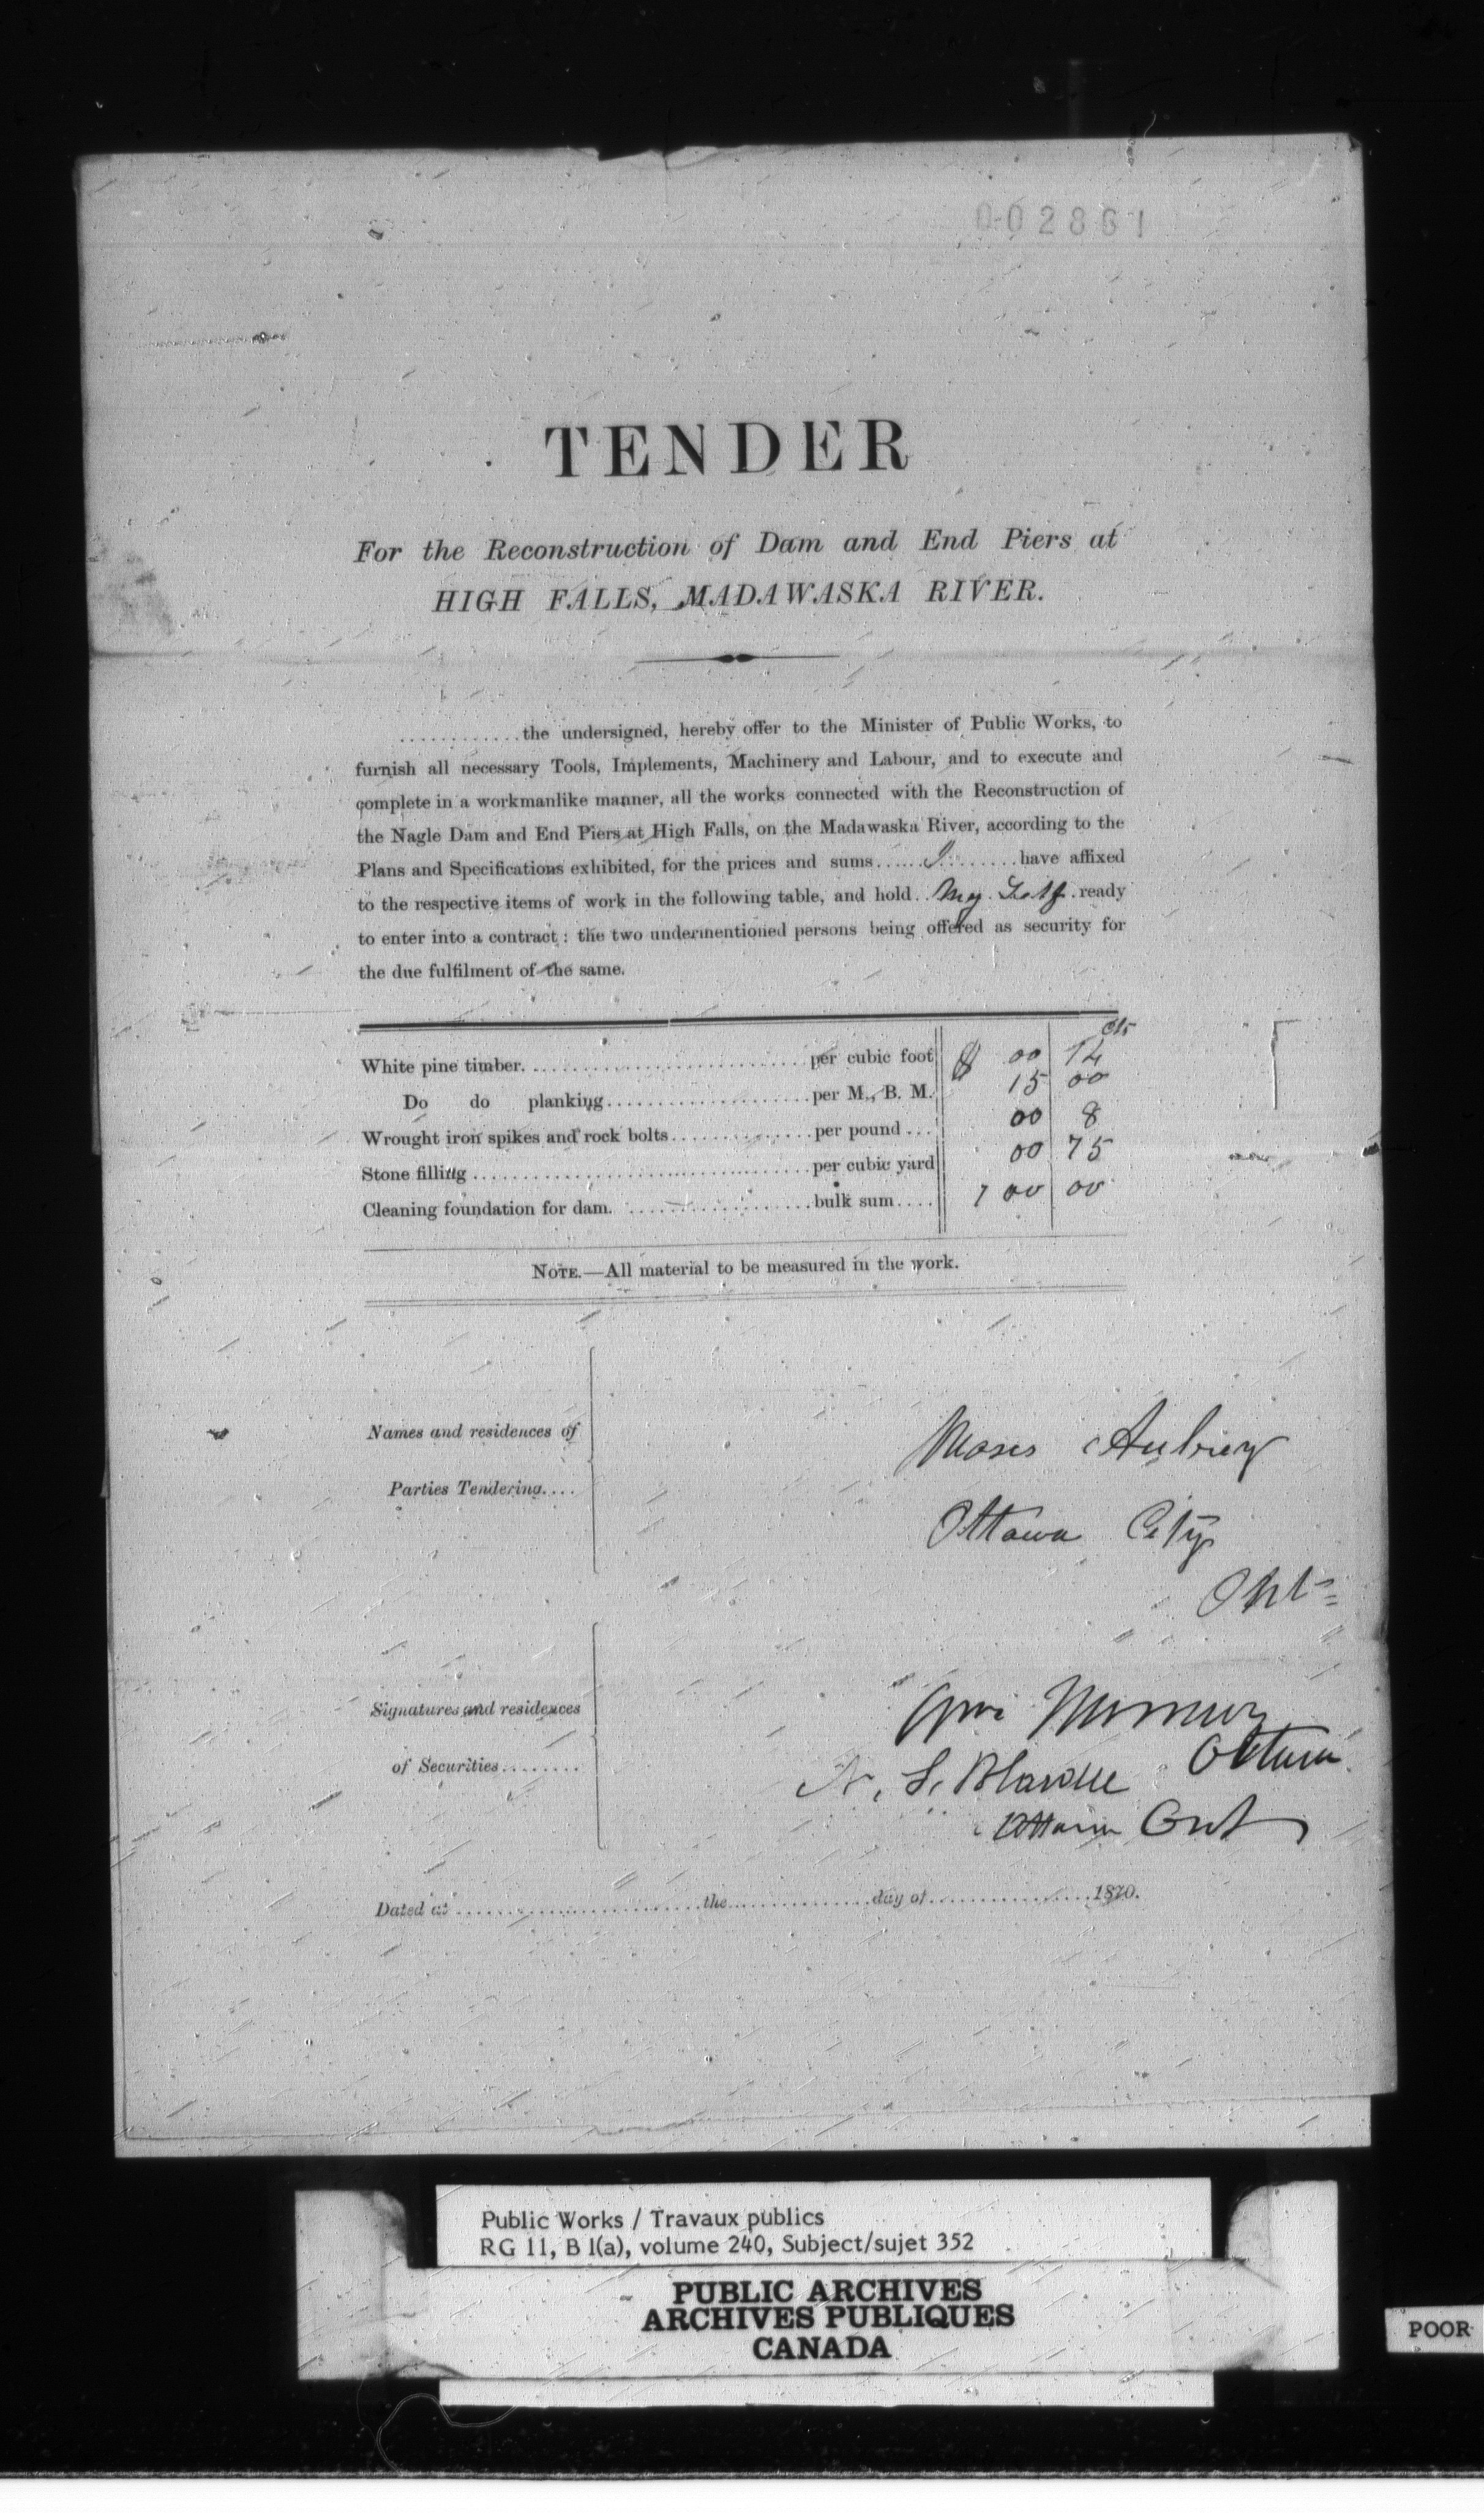 002861
TENDER
For the Reconstruction of Dam and End Piers at
HIGH FALLS, MADAWASKA RIVER.
............the undersigned, hereby offer to the Minister of Public Works, to
furnish all necessary Tools, Implements, Machinery and Labour, and to execute and
complete in a workmanlike manner, all the works connected with the Reconstruction of
the Nagle Dam and End Piers at High Falls, on the Madawaska River, according to the
Plans and Specifications exhibited, for the prices and sums......I........have affixed
to the respective items of work in the following table, and hold..My Self.ready
to enter into a contract: the two undermentioned persons being offered as security for
the due fulfilment of the same.
cts
White pine timber............................per cubic foot $ 00 14
Do do planking....................per M., B. M. 15 00
Wrought iron spikes and rock bolts..............per pound... 00 8
Stone filling.................................per cubic yard 00 75
Cleaning foundation for dam. ..................bulk sum.... 100 00
NOTE.—All material to be measured in the work.
Names and residences of
Parties Tendering....
Moses Aubrey
Ottawa City
Ont
Signatures and residences
of Securities........
Ottawa
N. S. Blasdell
Ottawa Ont
Dated at.........................the..............day of................1870.
Public Works / Travaux publics
RG 11, B 1(a), volume 240, Subject/sujet 352
PUBLIC ARCHIVES
ARCHIVES PUBLIQUES
CANADA
POOR